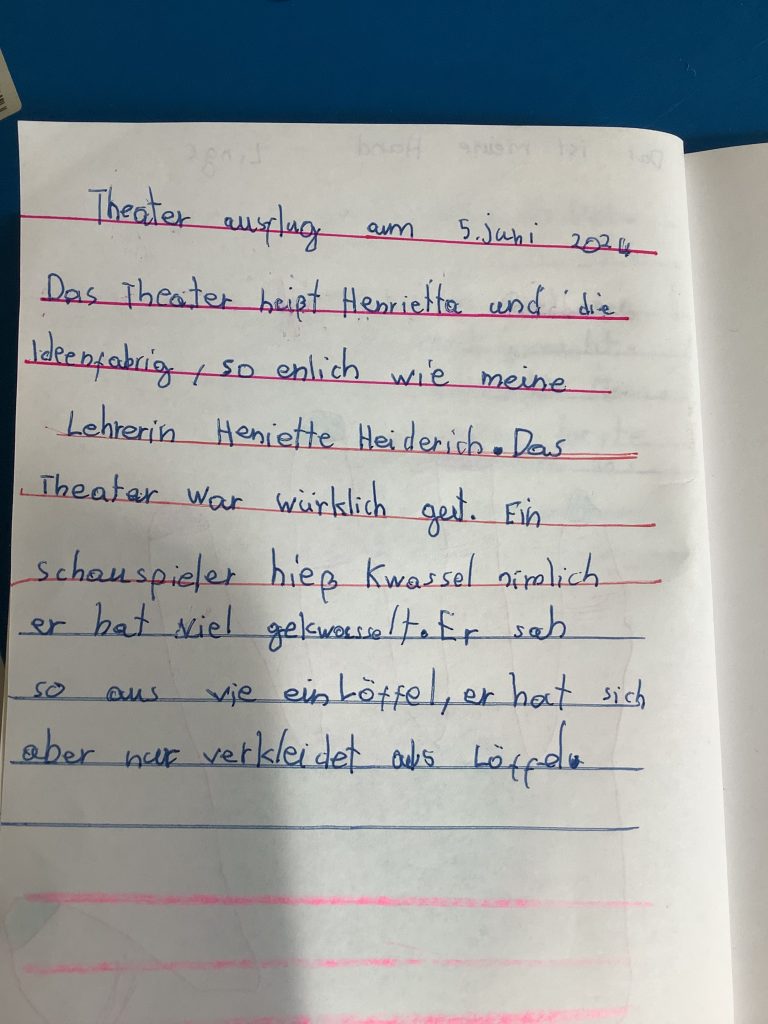 Theater ausflug am 5. juni 2024
Das Theater heißt Henrietta und die
Ideenfabrig, so enlich wie meine
Lehrerin Heniette Heiderich. Das
Theater war würklich gut. Ein
schauspieler hieß Kwassel nimlich
er hat viel gekwasselt. Er sah
so aus wie ein Löffel, er hat sich
aber nur verkleidet als Löffel.